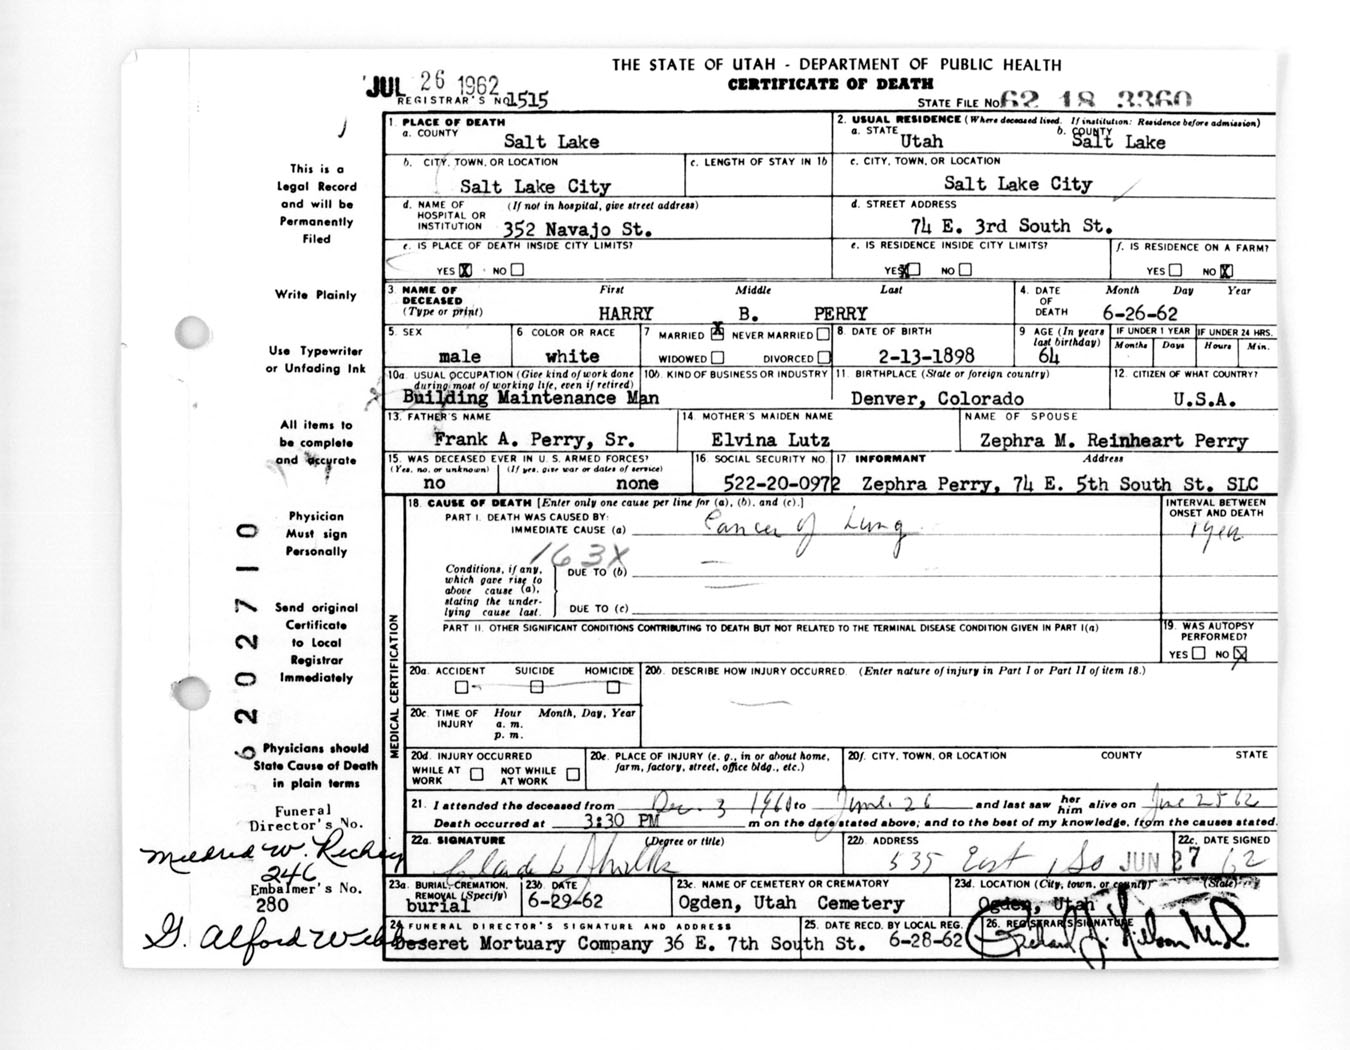 THE STATE OF UTAH - DEPARTMENT OF PUBLIC HEALTH
CERTIFICATE OF DEATH
JUL 26 1962
REGISTRAR'S NO. 1515
STATE FILE No. 62 18 3360
This is a
Legal Record
and will be
Permanently
Filed
Write Plainly
Use Typewriter
or Unfading Ink
All items to
be complete
and accurate
Physician
Must sign
Personally
Send original
Certificate
to Local
Registrar
Immediately
Physicians should
State Cause of Death
in plain terms
Funeral
Director's No.
Mildred W. Richey
246
Embalmer's No.
280
G. Alford Webb
6202710
1. PLACE OF DEATH
a. COUNTY
Salt Lake
2. USUAL RESIDENCE (Where deceased lived. If institution: Residence before admission)
a. STATE Utah b. COUNTY Salt Lake
b. CITY, TOWN, OR LOCATION
Salt Lake City
c. LENGTH OF STAY IN 1b
c. CITY, TOWN, OR LOCATION
Salt Lake City
d. NAME OF HOSPITAL OR INSTITUTION (If not in hospital, give street address)
352 Navajo St.
d. STREET ADDRESS
74 E. 3rd South St.
e. IS PLACE OF DEATH INSIDE CITY LIMITS?
YES X NO
e. IS RESIDENCE INSIDE CITY LIMITS?
YES X NO
f. IS RESIDENCE ON A FARM?
YES NO X
3. NAME OF DECEASED (Type or print) First Middle Last
HARRY B. PERRY
4. DATE OF DEATH Month Day Year
6-26-62
5. SEX
male
6 COLOR OR RACE
white
7 MARRIED X NEVER MARRIED
WIDOWED DIVORCED
8. DATE OF BIRTH
2-13-1898
9 AGE (In years last birthday)
64
IF UNDER 1 YEAR IF UNDER 24 HRS.
Months Days Hours Min.
10a. USUAL OCCUPATION (Give kind of work done during most of working life, even if retired)
Building Maintenance Man
10b. KIND OF BUSINESS OR INDUSTRY
11. BIRTHPLACE (State or foreign country)
Denver, Colorado
12. CITIZEN OF WHAT COUNTRY?
U.S.A.
13. FATHER'S NAME
Frank A. Perry, Sr.
14. MOTHER'S MAIDEN NAME
Elvina Lutz
NAME OF SPOUSE
Zephra M. Reinheart Perry
15. WAS DECEASED EVER IN U. S. ARMED FORCES?
(Yes, no, or unknown) (If yes, give war or dates of service)
no none
16. SOCIAL SECURITY NO.
522-20-0972
17. INFORMANT Address
Zephra Perry, 74 E. 5th South St. SLC
18. CAUSE OF DEATH [Enter only one cause per line for (a), (b), and (c).]
INTERVAL BETWEEN ONSET AND DEATH
PART I. DEATH WAS CAUSED BY:
IMMEDIATE CAUSE (a) Cancer of Lung
1 year
163X
Conditions, if any, which gave rise to above cause (a), stating the underlying cause last.
DUE TO (b)
DUE TO (c)
PART II. OTHER SIGNIFICANT CONDITIONS CONTRIBUTING TO DEATH BUT NOT RELATED TO THE TERMINAL DISEASE CONDITION GIVEN IN PART I(a)
19. WAS AUTOPSY PERFORMED?
YES NO X
MEDICAL CERTIFICATION
20a. ACCIDENT SUICIDE HOMICIDE
20b. DESCRIBE HOW INJURY OCCURRED. (Enter nature of injury in Part I or Part II of item 18.)
20c. TIME OF INJURY Hour Month, Day, Year
a. m.
p. m.
20d. INJURY OCCURRED
WHILE AT WORK NOT WHILE AT WORK
20e. PLACE OF INJURY (e. g., in or about home, farm, factory, street, office bldg., etc.)
20f. CITY, TOWN, OR LOCATION COUNTY STATE
21. I attended the deceased from Dec. 3 1960 to June 26 and last saw her him alive on June 25 62
Death occurred at 3:30 PM m on the date stated above; and to the best of my knowledge, from the causes stated.
22a. SIGNATURE (Degree or title)
22b. ADDRESS
535 East 1 So
22c. DATE SIGNED
JUN 27 62
23a. BURIAL, CREMATION, REMOVAL (Specify)
burial
23b. DATE
6-29-62
23c. NAME OF CEMETERY OR CREMATORY
Ogden, Utah Cemetery
23d. LOCATION (City, town, or county) (State)
Ogden, Utah
24. FUNERAL DIRECTOR'S SIGNATURE AND ADDRESS
Deseret Mortuary Company 36 E. 7th South St.
25. DATE RECD. BY LOCAL REG.
6-28-62
26. REGISTRAR'S SIGNATURE